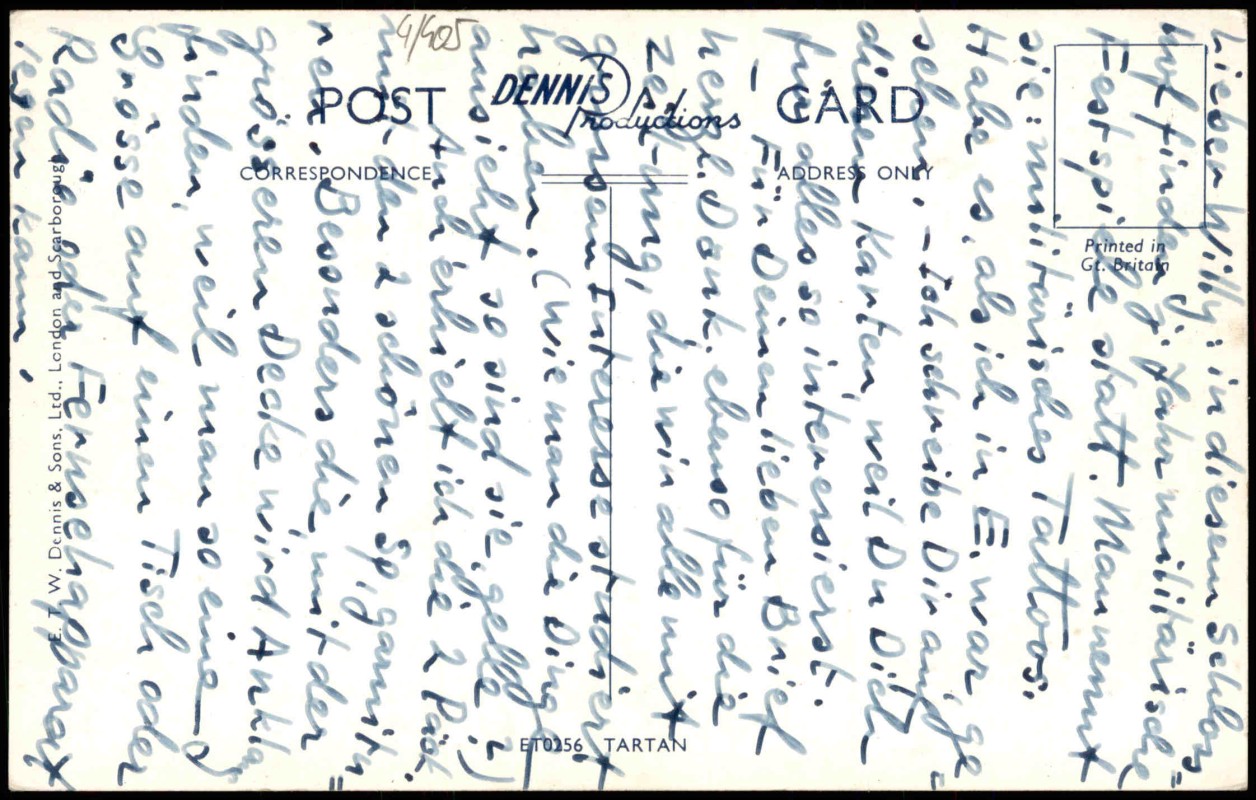 4/405
POST CARD
DENNIS
Productions
CORRESPONDENCE
ADDRESS ONLY
Printed in
Gt. Britain
E. T. W. Dennis & Sons, Ltd., London and Scarborough
ET0256 TARTAN
Lieber Willy: in diesem Schloss=
hof finden Jahr militärische
Festspiele statt. Man nennt
sie: militärisches Tattoos.
Habe es, als ich in E. war ge=
sehen. – Ich schreibe Dir auf
diesen Karten, weil Du Dich
für alles so interessierst.
– Für Deinen lieben Brief
herzl. Dank, ebenso für die
Zeitung, die wir alle mit
grossem Interesse studiert
haben. (Wie man die Dinge
ansieht, so sind sie, gelle!)
Auch erhielt ich die 2 Päck.
mit den 2 schönen Sp. garnitu=
ren. Besonders die, mit der
grösseren Decke wird Anklang
finden, weil man so eine
Grösse auf einen Tisch oder
Radio oder Fernsehapparat
legen kann.